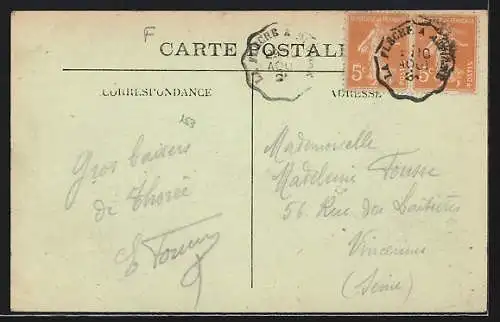 F
CARTE POSTALE
LA FLÈCHE A
AOU
LA FLÈCHE A
10
AOU
5c
5c
POSTES
CORRESPONDANCE
ADRESSE
153
Gros baisers
de Thorée
Mademoiselle
Madeleine
56 Rue des Laitières
Vincennes
(Seine)